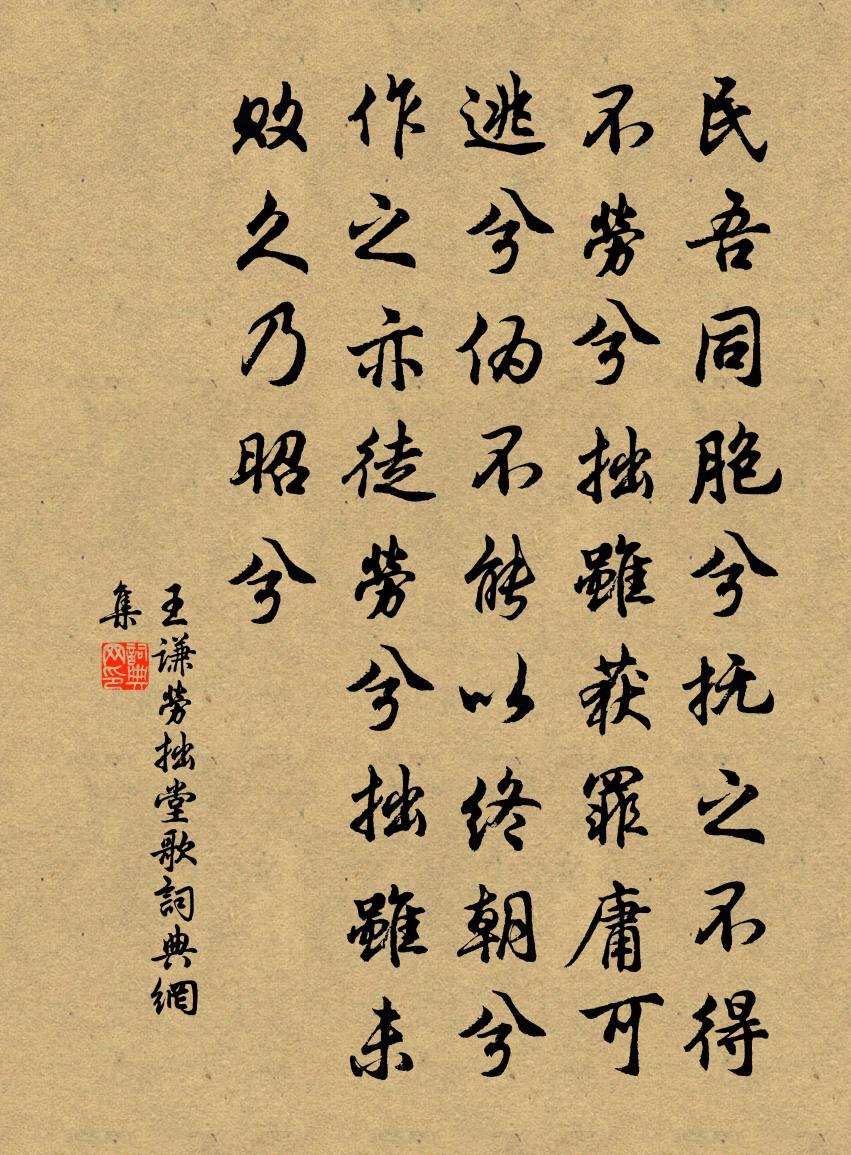 民吾同胞兮抚之不得
不勞兮拙雖获罪庸可
逃兮伪不能以终朝兮
作之亦徒勞兮拙雖未
败久乃昭兮
王谦勞拙堂歌詞典網
集
詞典网印